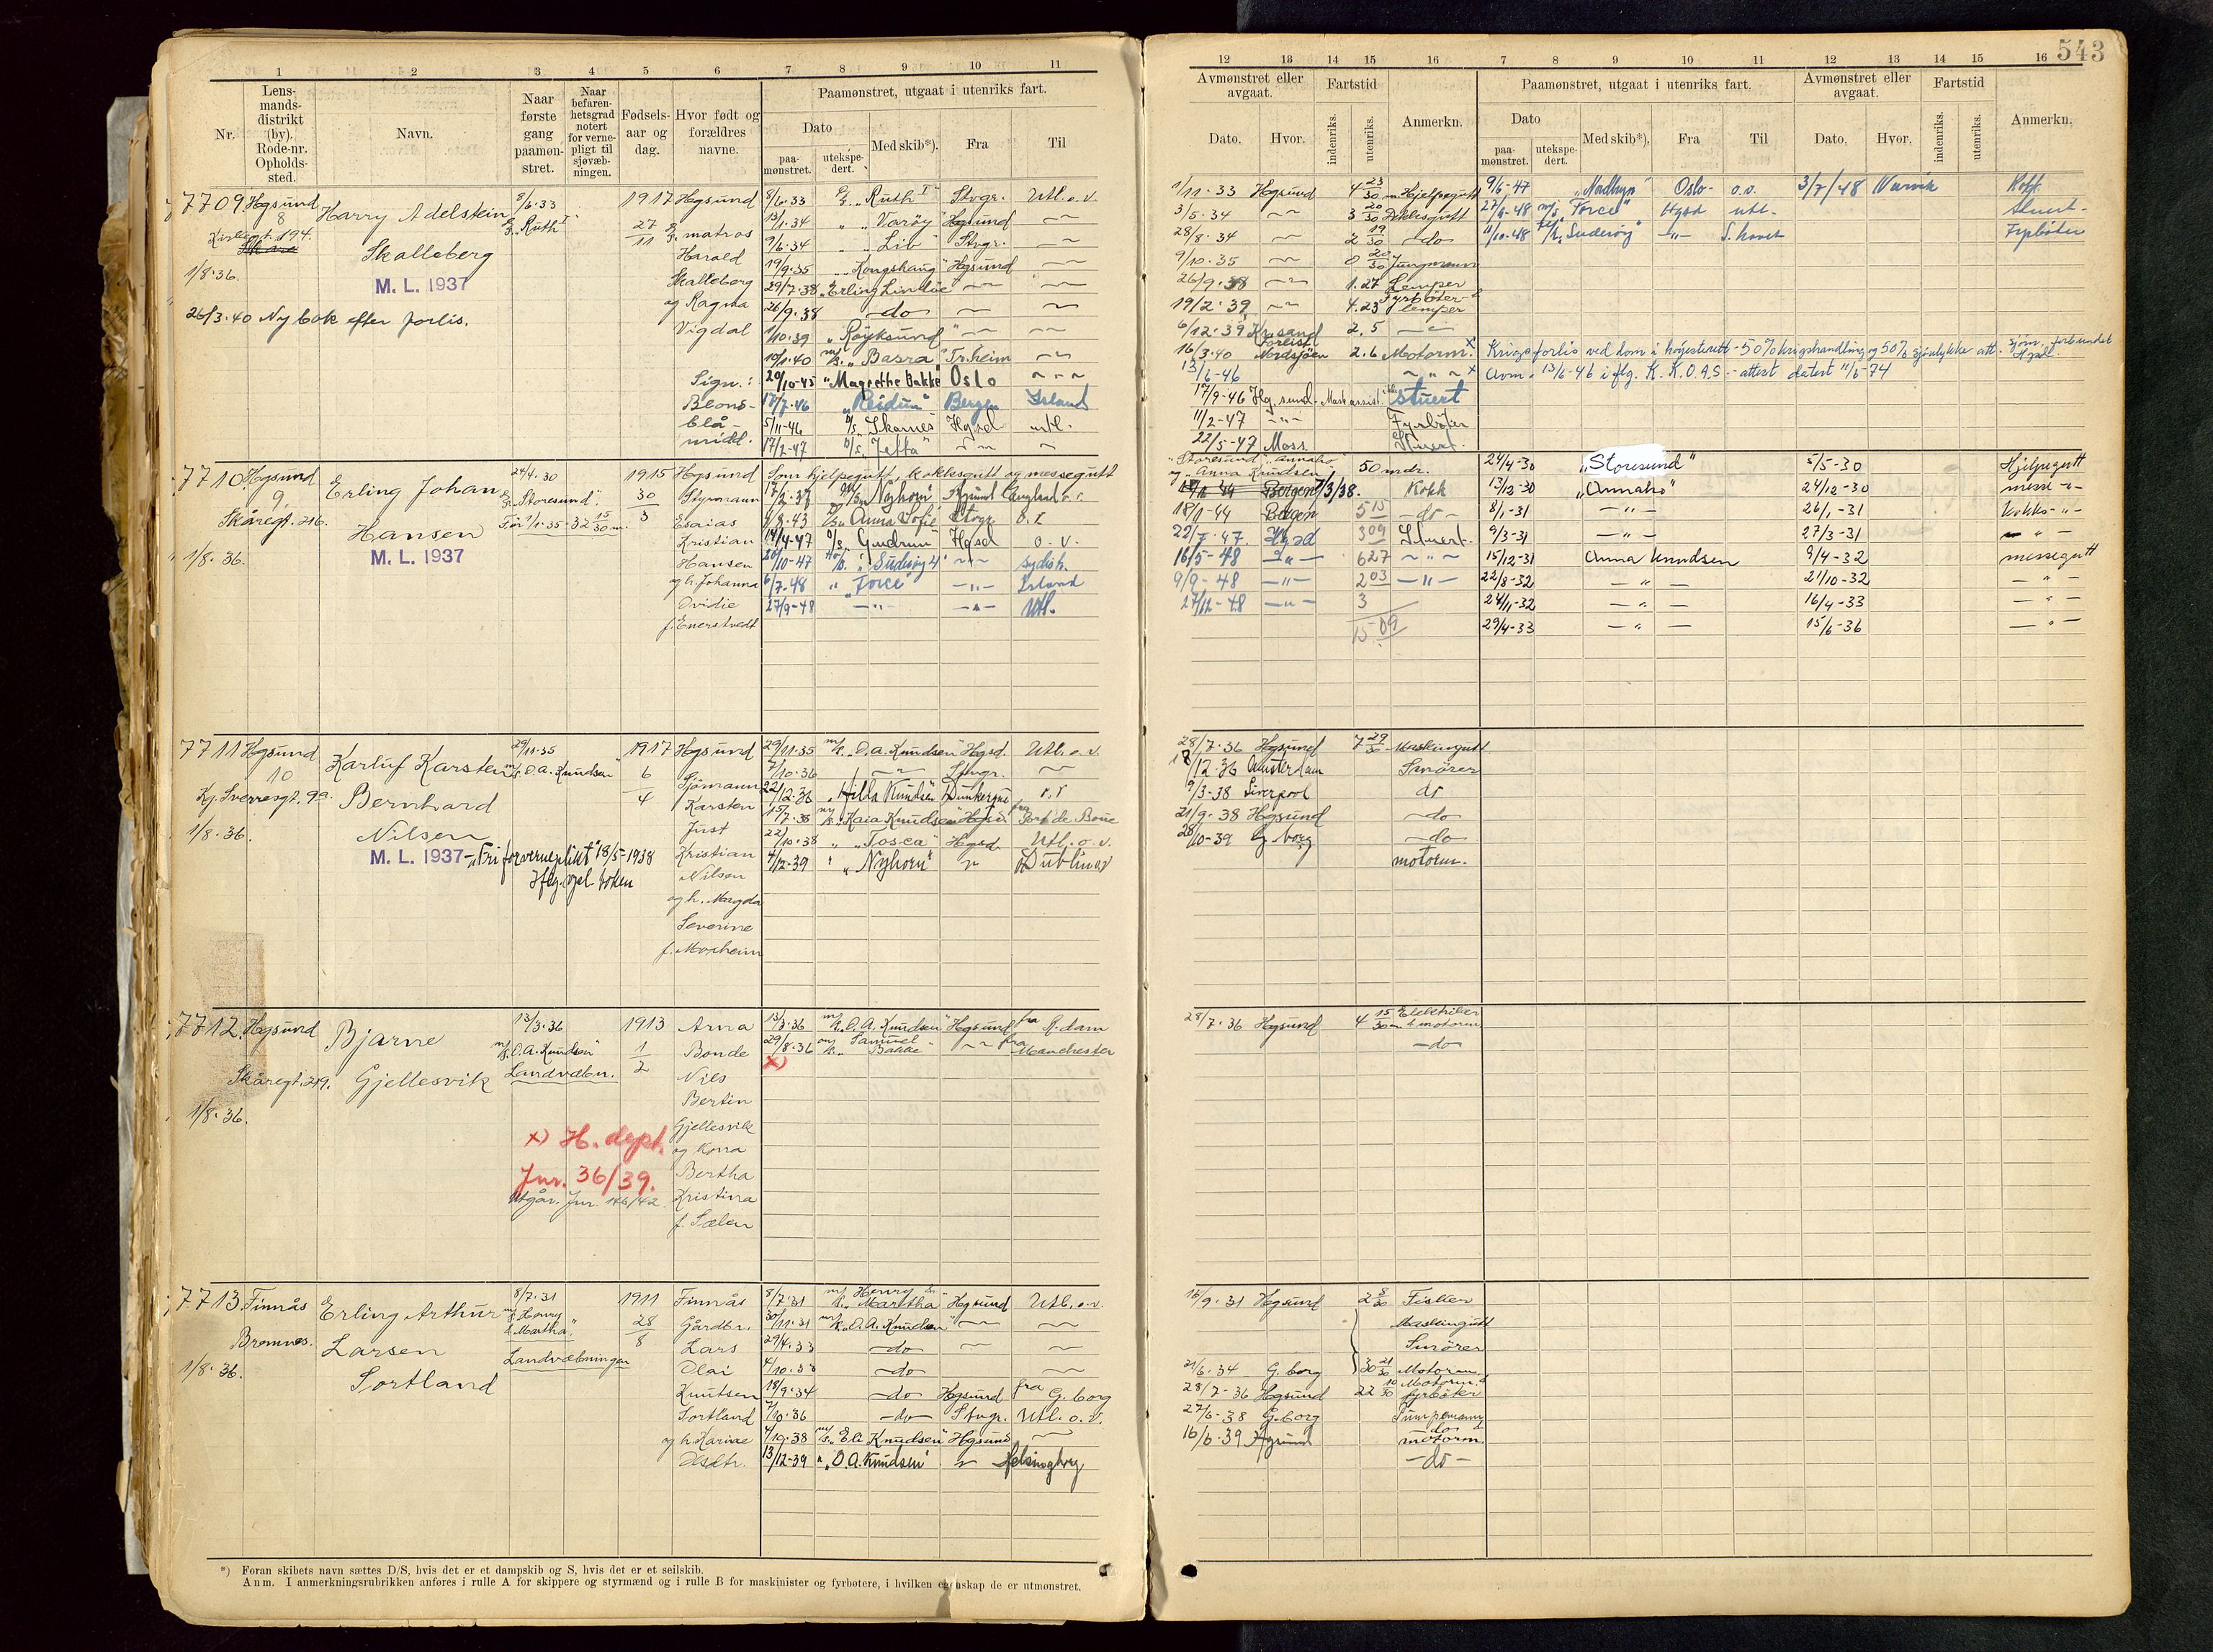 543
1 2 3 4 5 6 7 8 9 10 11
Nr.
Lens-
mands-
distrikt
(by).
Rode-nr.
Opholds-
sted.
Navn.
Naar
første
gang
paamøn-
stret.
Naar
befaren-
hetsgrad
notert
for verne-
pligt til
sjøvæb-
ningen.
Fødsels-
aar og
dag.
Hvor født og
forældres
navne.
Paamønstret, utgaat i utenriks fart.
Dato
paa-
mønstret.
utekspe-
dert.
Med skib*).
Fra
Til
12 13 14 15 16 7 8 9 10 11 12 13 14 15 16
Avmønstret eller
avgaat.
Dato.
Hvor.
Fartstid
indenriks.
utenriks.
Anmerkn.
Paamønstret, utgaat i utenriks fart.
Dato
paa-
mønstret.
utekspe-
dert.
Med skib*).
Fra
Til
Avmønstret eller
avgaat.
Dato.
Hvor.
Fartstid
indenriks.
utenriks.
Anmerkn.
7709 Hgsund
8
194.
1/8.36.
Harry Adelstein
Skalleberg
M. L. 1937
26/3.40 Ny bok efter forlis.
8/6.33
"Ruth I"
1917
27
11
Hgsund
matros
Harald
Skalleberg
og Ragna
Vigdal
8/6.33 "Ruth I" Stvgr. Utl. o. v.
13/1.34 "Varöy" Hgsund
9/6.34 "Liv" Stvgr.
19/9.35 "Kongshaug" Hgsund
29/7.38 "Erling Lindöe"
26/9.38 do
1/10.39 "Röyksund"
10/1.40 "Basra" Tr.heim
20/10-45 "Magrethe Bakke" Oslo
17/7-46 "Reidun" Bergen Island
5/11-46 "Skarnes" Hgsd utl.
17/2-47 "Jetta"
1/11.33 Hgsund 4 23/30 m. Hjelpegutt
3/5.34 3 20/30 Dekksgutt
28/8.34 2 19/30 do
9/10.35 0 20/30 Jungmann
26/9.38 1.27 Lemper
19/2.39 4.23 Fyrböter-lemper
6/12.39 Kr.sand 2.5
16/3.40 Forlist Nordsjöen 2.6 Motorm.
13/6-46
17/9-46 Hg.sund Stuert
11/2-47 Fyrböter
22/5-47 Moss Stuert.
9/6-47 "Nadhys" Oslo- o.v. 3/7/48 Narvik Kokk
27/9-48 "Force" Hgsd utl. Stuert.
11/10-48 "Suderöy" S. havet Fyrböter
Krigsforlis ved dom i höyesterett - 50% krigshandling og 50% sjöulykke att. Sjöm. forbundet Hgsd.
Avm. 13/6-46 iflg. K.K.O.A.S. - attest datert 11/6-74
7710 Hgsund
9
Skåregt. 216.
1/8.36.
Erling Johan
Hansen
M. L. 1937
24/4.30
"Storesund"
1915
30
3
Hgsund
Styrmann
Esaias
Kristian
Hansen
og h. Johanna
Ovidie
f. Enerstvedt
Som hjelpegutt, kokksgutt og messegutt
17/2.37 "Nyhorn" Hgsund England
"Anna Sofie" Stvgr.
14/4-47 "Gudrun" Hgsd o. v.
20/10-47 "Suderöy 4" sydish.
6/7-48 "Force" Island
27/9-48 Utl.
"Storesund" "Annaho"
og "Anna Knudsen" 50 mdr.
Bergen 7/3/38. Kokk
18/1-44 Bergen 515 do
22/7-47. Hgsd 309 Stuert.
16/5-48 627
9/9-48 203
27/12-48 3
15-09
24/4-30 "Storesund" 5/5-30 Hjelpegutt
13/12-30 "Annaho" 24/12-30 messe -"-
8/1-31 -"- 26/1-31 kokks -"-
9/3-31 -"- 27/3-31 -"-
15/12-31 Anna Knudsen 9/4-32 messegutt
22/8-32 -"- 21/10-32 -"-
24/11-32 -"- 16/4-33 -"-
29/4-33 -"- 15/6-36 -"-
7711 Hgsund
10
Kg. Sverresgt. 9a
1/8.36.
Karluf Karsten
Bernhard
Nilsen
M. L. 1937 - "Fri for verneplikt" 18/5-1938
29/11.35
"O. A. Knudsen"
1917
6
4
Hgsund
Sjömann
Karsten
Just
Kristian
Nilsen
og h. Magda
Severine
f. Moxheim
29/11.35 "O. A. Knudsen" Hgsd. Utl. o. v.
7/10.36 Stvgr.
22/12.36 "Hilda Knudsen" Dunkerque
15/7.38 "Kaia Knudsen" Hgsd fra Port de Bouc
22/10.38 "Tosca" Hgsd Utl. o. v.
4/12.39 "Nyhorn" Dublin
28/7.36 Hgsund 7 29/30 Maskingutt
18/12.36 Amsterdam Smörer
9/3-38 Liverpool do
21/9.38 Hgsund do
28/10-39 G.borg do
motorm.
7712. Hgsund
Skåregt. 219.
1/8.36.
Bjarne
Gjellesvik
13/3.36
"O. A. Knudsen"
Landvæbn.
x) H. dept.
Jnr. 36/39.
Utgår. Jnr. 186/42
1913
1
2
Arna
Bonde
Nils
Bertin
Gjellesvik
og Kona
Bertha
Kristina
f. Sælen
13/3.36 "O. A. Knudsen" Hgsund fra R.dam
29/8.36 "Samuel Bakke" fra Manchester
x)
28/7.36 Hgsund 4 15/30 m. Elektriker & motorm
do
7713. Finnås
Bremnes.
1/8.36.
Erling Arthur
Larsen
Sortland
8/7.31
"Henry & Martha"
Landvæbningen
1911
28
8
Finnås
Gårdbr.
Lars
Olai
Knutsen
Sortland
og h. Karine
Olsdtr.
8/7.31 "Henry & Martha" Hgsund Utl. o. v.
30/11.31 "O. A. Knudsen"
29/4.33 do
4/10.33 do
18/9.34 do Hgsund fra G.borg
7/10.36 do Stvgr. Utl. o. v.
4/10.38 "Eli Knudsen" Hgsund
13/12-39 "O. A. Knudsen" Helsingborg
16/9.31 Hgsund 2 8/30 Fisker
Maskingutt
Smörer
21/6.34 G.borg 30 21/30 Motorm.
28/7-36 Hgsund 22 10/30 Motorm. & fyrböter
27/6-38 G.borg Pumpemann
16/6.39 Hgsund do motorm.
do
*) Foran skibets navn sættes D/S, hvis det er et dampskib og S, hvis det er et seilskib.
Anm. I anmerkningsrubrikken anføres i rulle A for skippere og styrmænd og i rulle B for maskinister og fyrbøtere, i hvilken egenskap de er utmønstret.